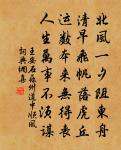 北風一夕阻東舟
清早飛帆落虎丘
運數本來無得喪
人生萬事不須謀
王安石蘇州道中順風
詞典網集